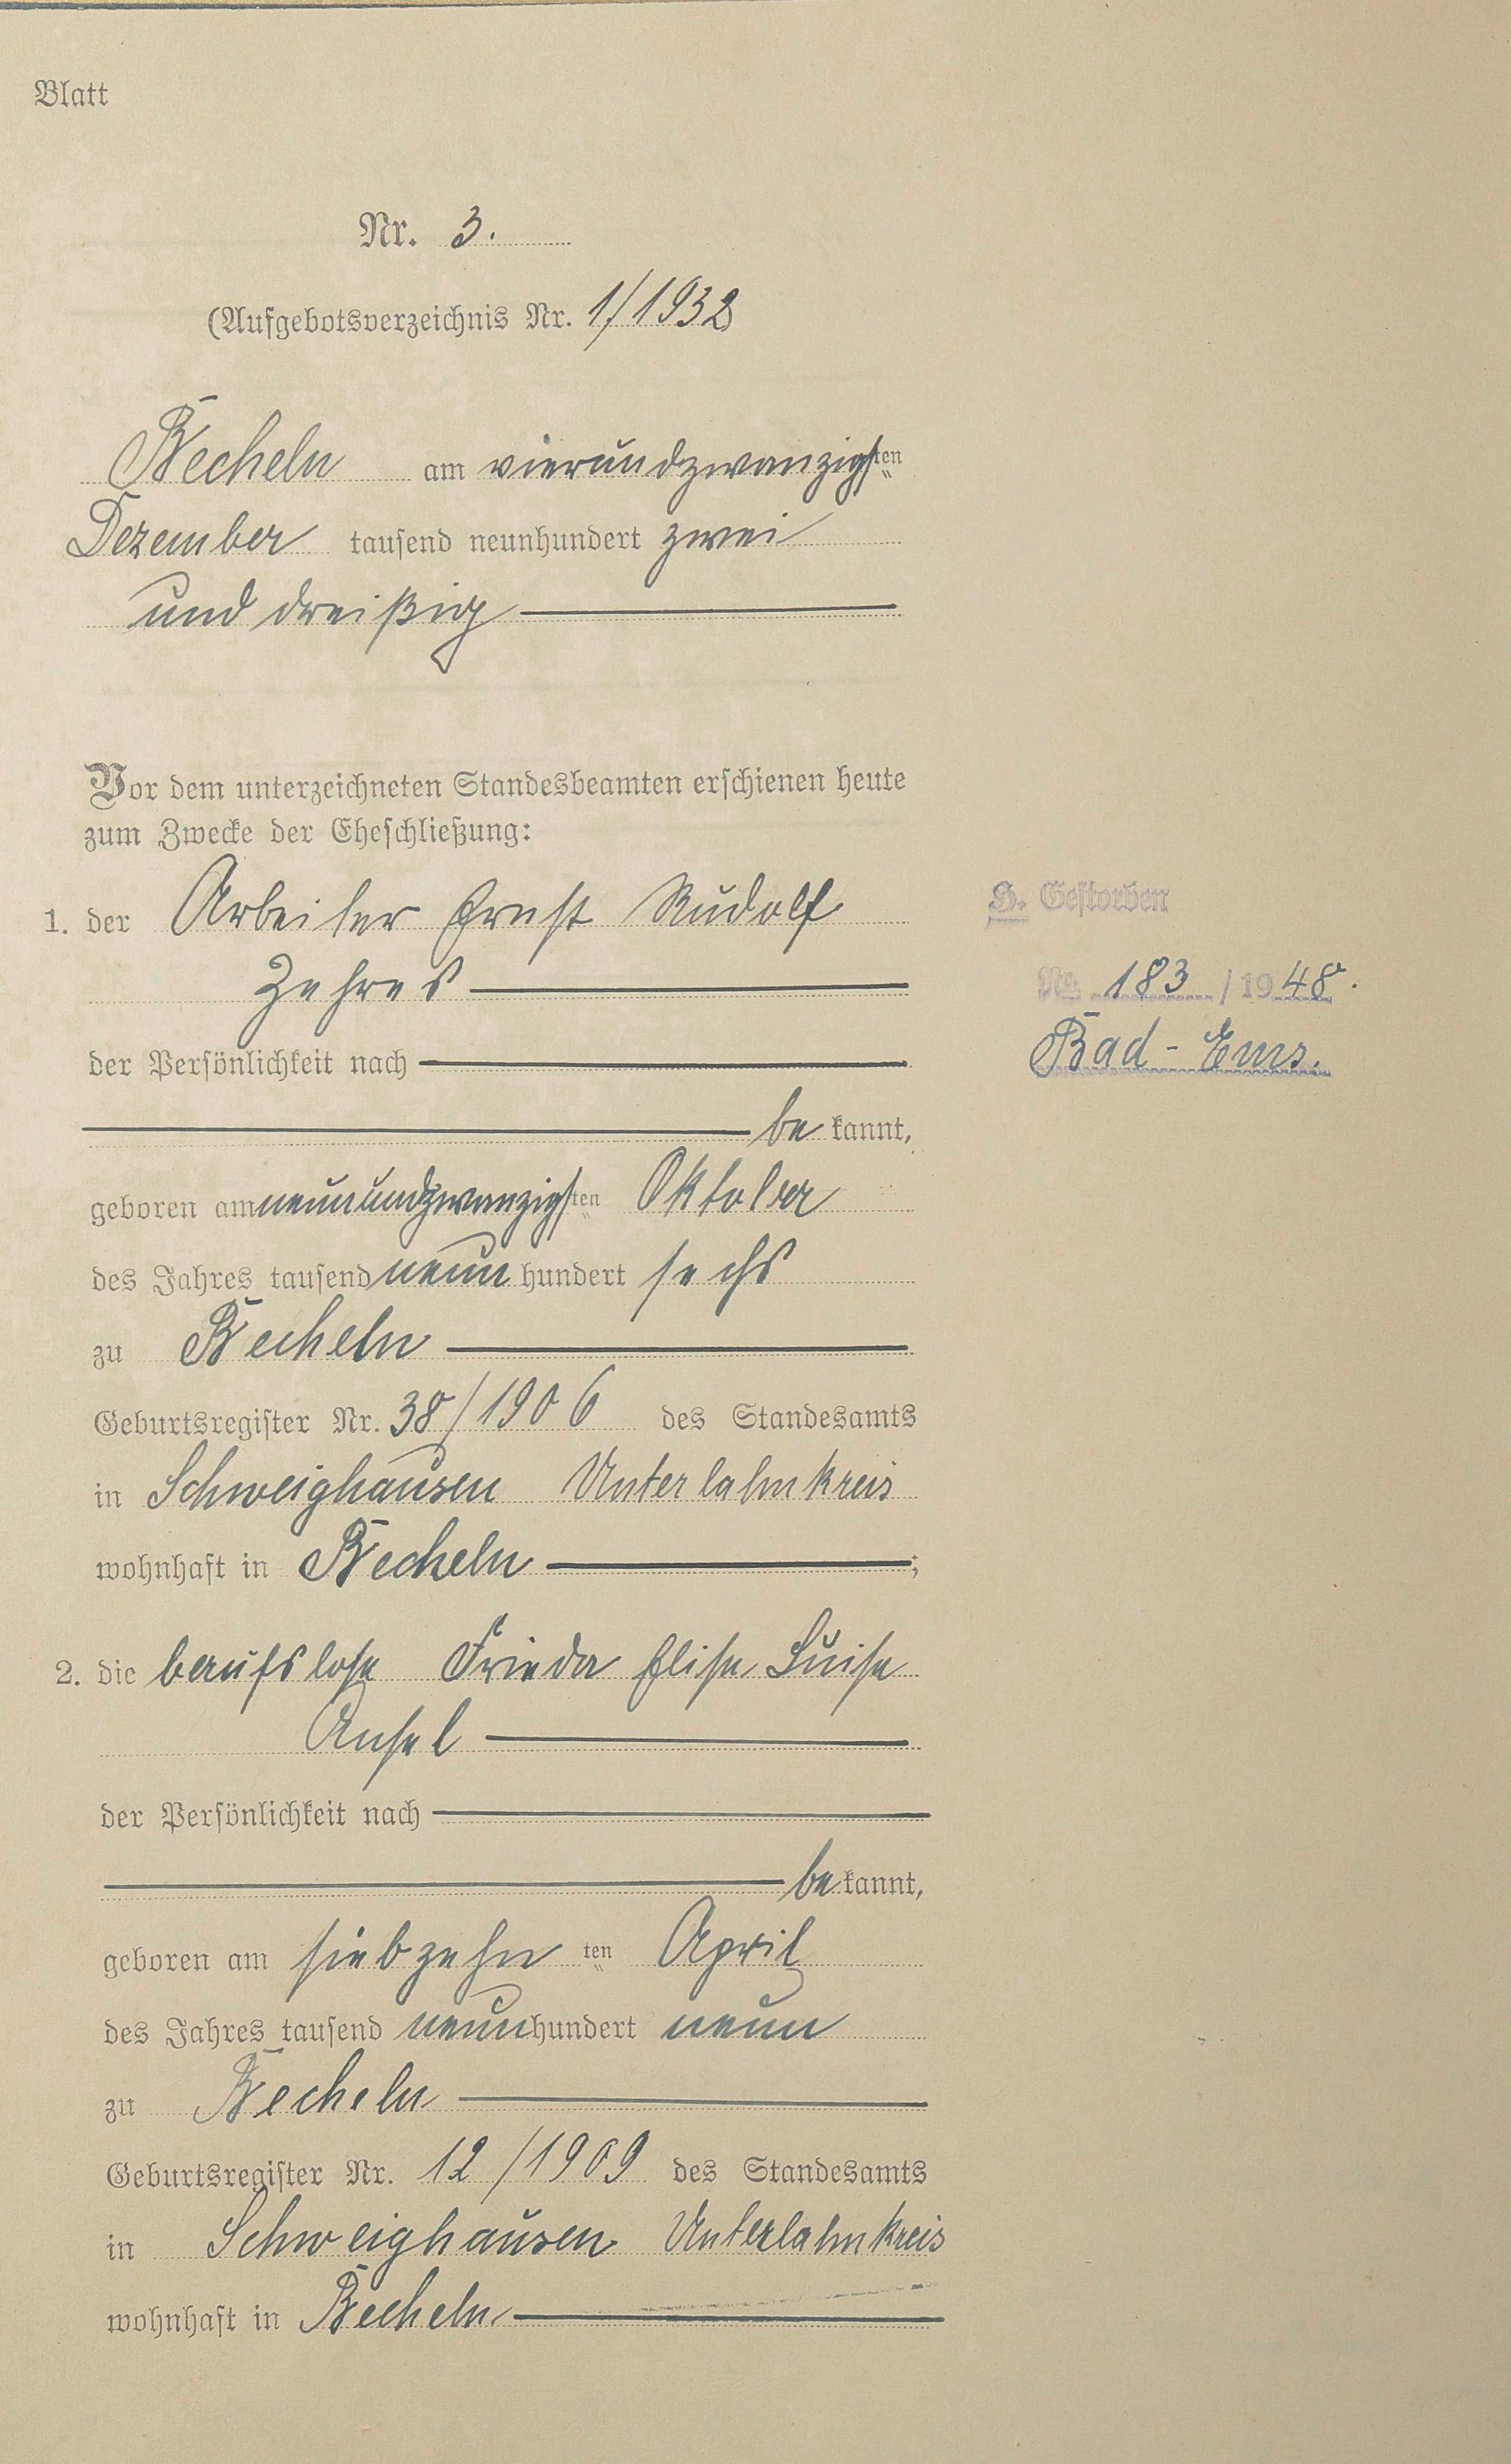 Blatt
Nr. 3.
(Aufgebotsverzeichnis Nr. 1/1932)
Becheln am vierundzwanzigsten
Dezember tausend neunhundert zwei
und dreißig
Vor dem unterzeichneten Standesbeamten erschienen heute
zum Zwecke der Eheschließung:
1. der Arbeiter Ernst Rudolf
Zehres
der Persönlichkeit nach
be kannt,
geboren am neunundzwanzigsten Oktober
des Jahres tausend neun hundert sechs
zu Becheln
Geburtsregister Nr. 38/1906 des Standesamts
in Schweighausen Unterlahnkreis
wohnhaft in Becheln ;
2. die berufslose Frieda Elise Luise
Ansel
der Persönlichkeit nach
be kannt,
geboren am siebzehn ten April
des Jahres tausend neun hundert neun
zu Becheln
Geburtsregister Nr. 12/1909 des Standesamts
in Schweighausen Unterlahnkreis
wohnhaft in Becheln
H. Gestorben
Nr. 183 / 1948.
Bad-Ems.